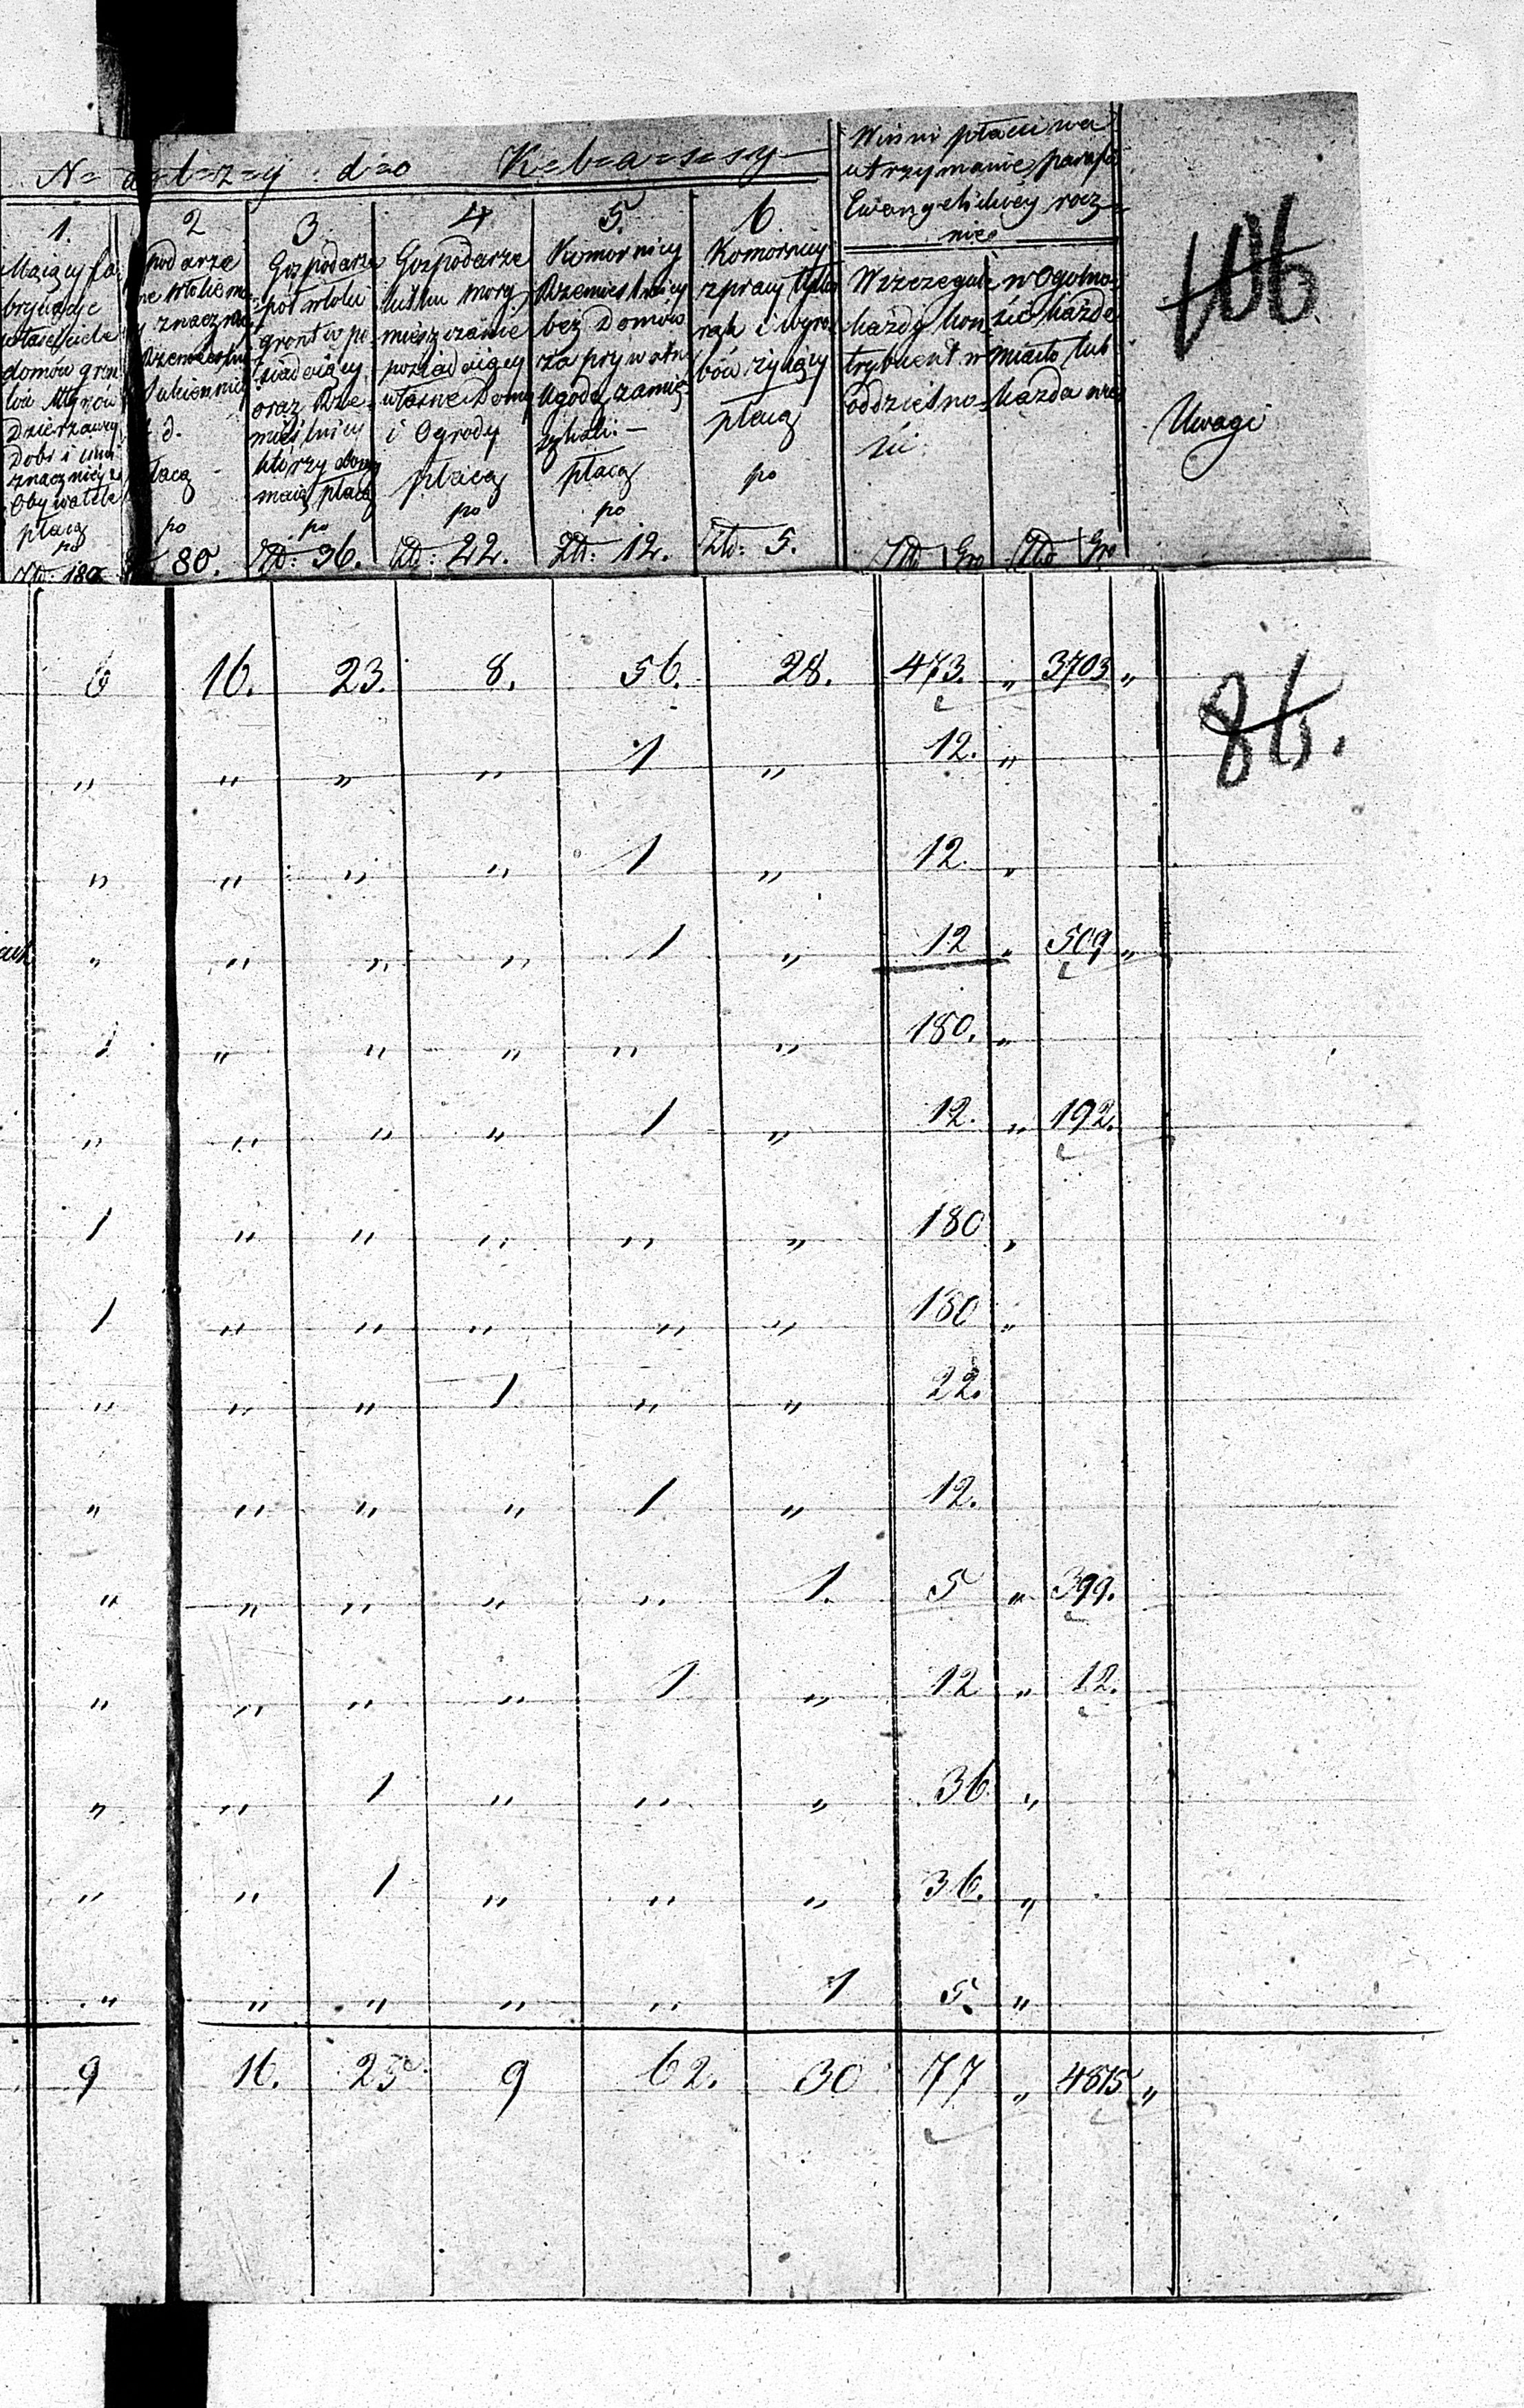 N=a=l=e=z=y d=o K=l=a=s=s=y
Winni płacić na
utrzymanie parafii
Ewangelickiéy rocz=
nie
106
1. 2 3 4 5. 6.
Maiący fa
brykacye
właściciele
domów grun
tu Młynów
Dzierzawcy
Dobr i inni
znacznieysi
Obywatele
płacą
po
Złd: 180
podarze
znaczn
Rzemieślni
Sukiennicy
t d.
łacą
po
80.
Gospodarze
pół włoki
gruntu po=
siadaiący
oraz Rze=
mieślnicy
którzy domy
maią płacą
po
Złd: 36.
Gospodarze
kilku morg
mieszczanie
posiadaiący
własne Domy
i Ogrody
płacą
po
Złd: 22.
Komornicy
Rzemieślnicy
bez Domów
za prywatn
ugodą zamie
szkali. —
płacą
po
Złd: 12.
Komornicy
z pracy tylko
rąk i wyro
bów żyiący
płacą
po
Złd: 5.
W szczególe
każdy kon
trybuent
oddzielno
Złd Gro
w Ogólno=
ści każde
miasto lub
każda wieś
Złd Gro
Uwagi
6 16. 23. 8. 56. 28. 473. „ 3703 „
86.
„ „ „ „ 1 „ 12. „
„ „ „ „ 1 „ 12. „
„ „ „ „ 1 „ 12 „ 509 „
1 „ „ „ „ „ 180. „
„ „ „ „ 1 „ 12. „ 192.
1 „ „ „ „ „ 180 „
1 „ „ „ „ „ 180 „
„ „ „ 1 „ „ 22.
„ „ „ „ 1 „ 12.
„ „ „ „ „ 1. 5 „ 399.
„ „ „ „ 1 „ 12 „ 12.
„ „ 1 „ „ „ 36 „
„ „ 1 „ „ „ 36. „
„ „ „ „ „ 1 5. „
9 16. 25 9 62. 30 77 „ 4815 „